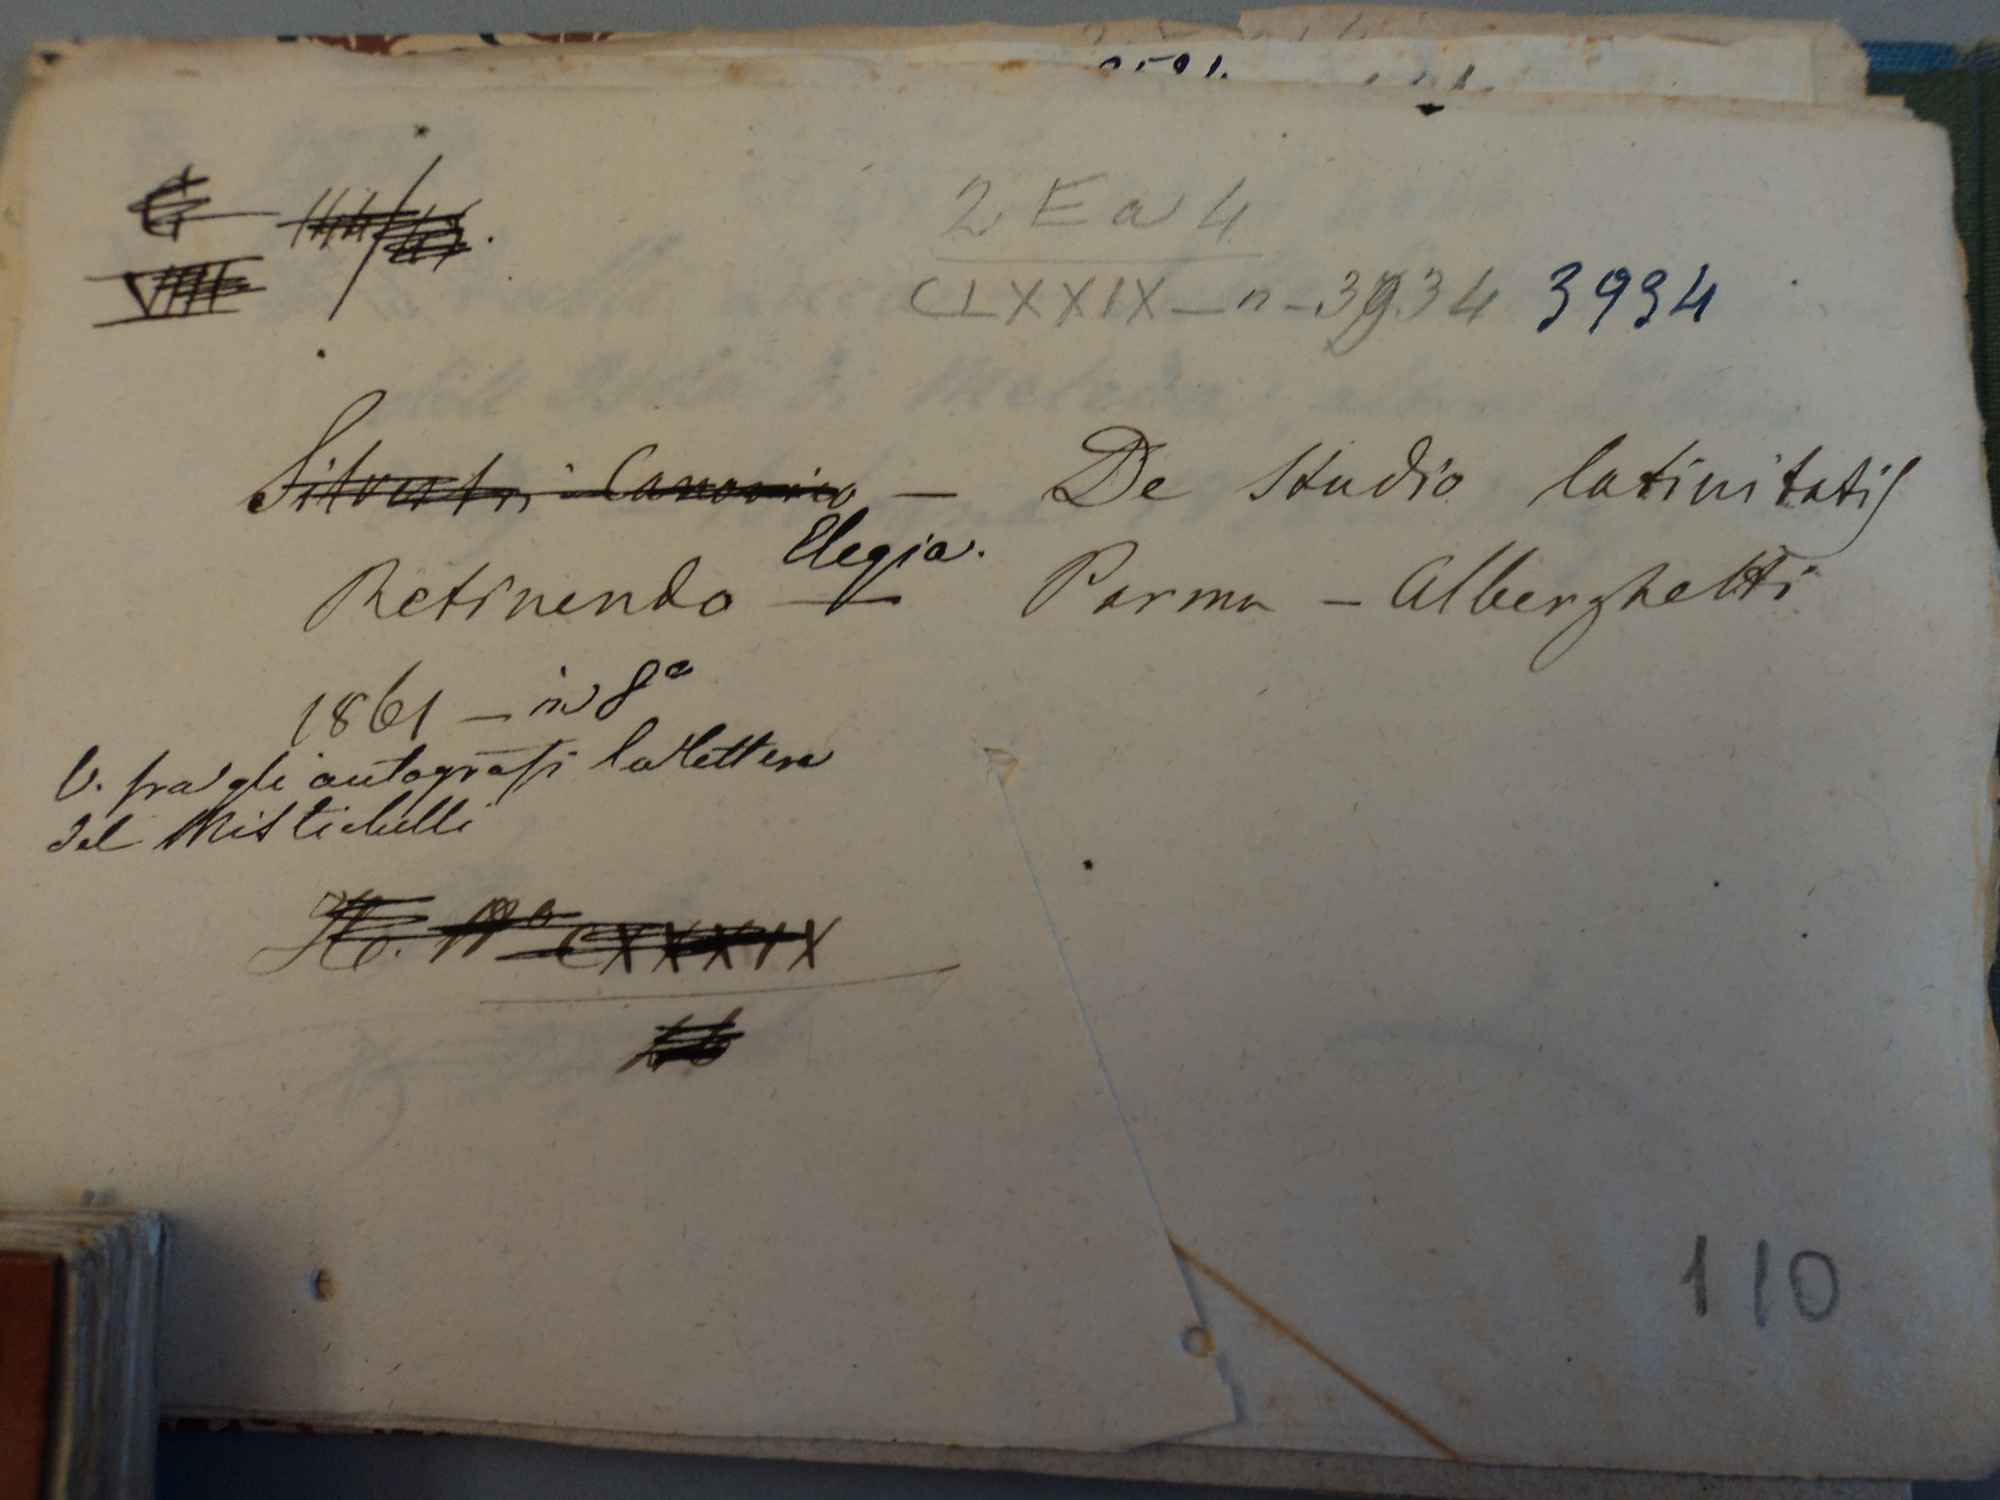 G
VIII
2 E a 4
CLXXIX - n - 3934 3934
Silvestri Canonico — De Studio latinitatis
Retinendo — Elegia. Parma - Alberghetti
1861 — in 8°
V. fra gli autografi la lettera
del Mistichelli
N° CXXXIX
110